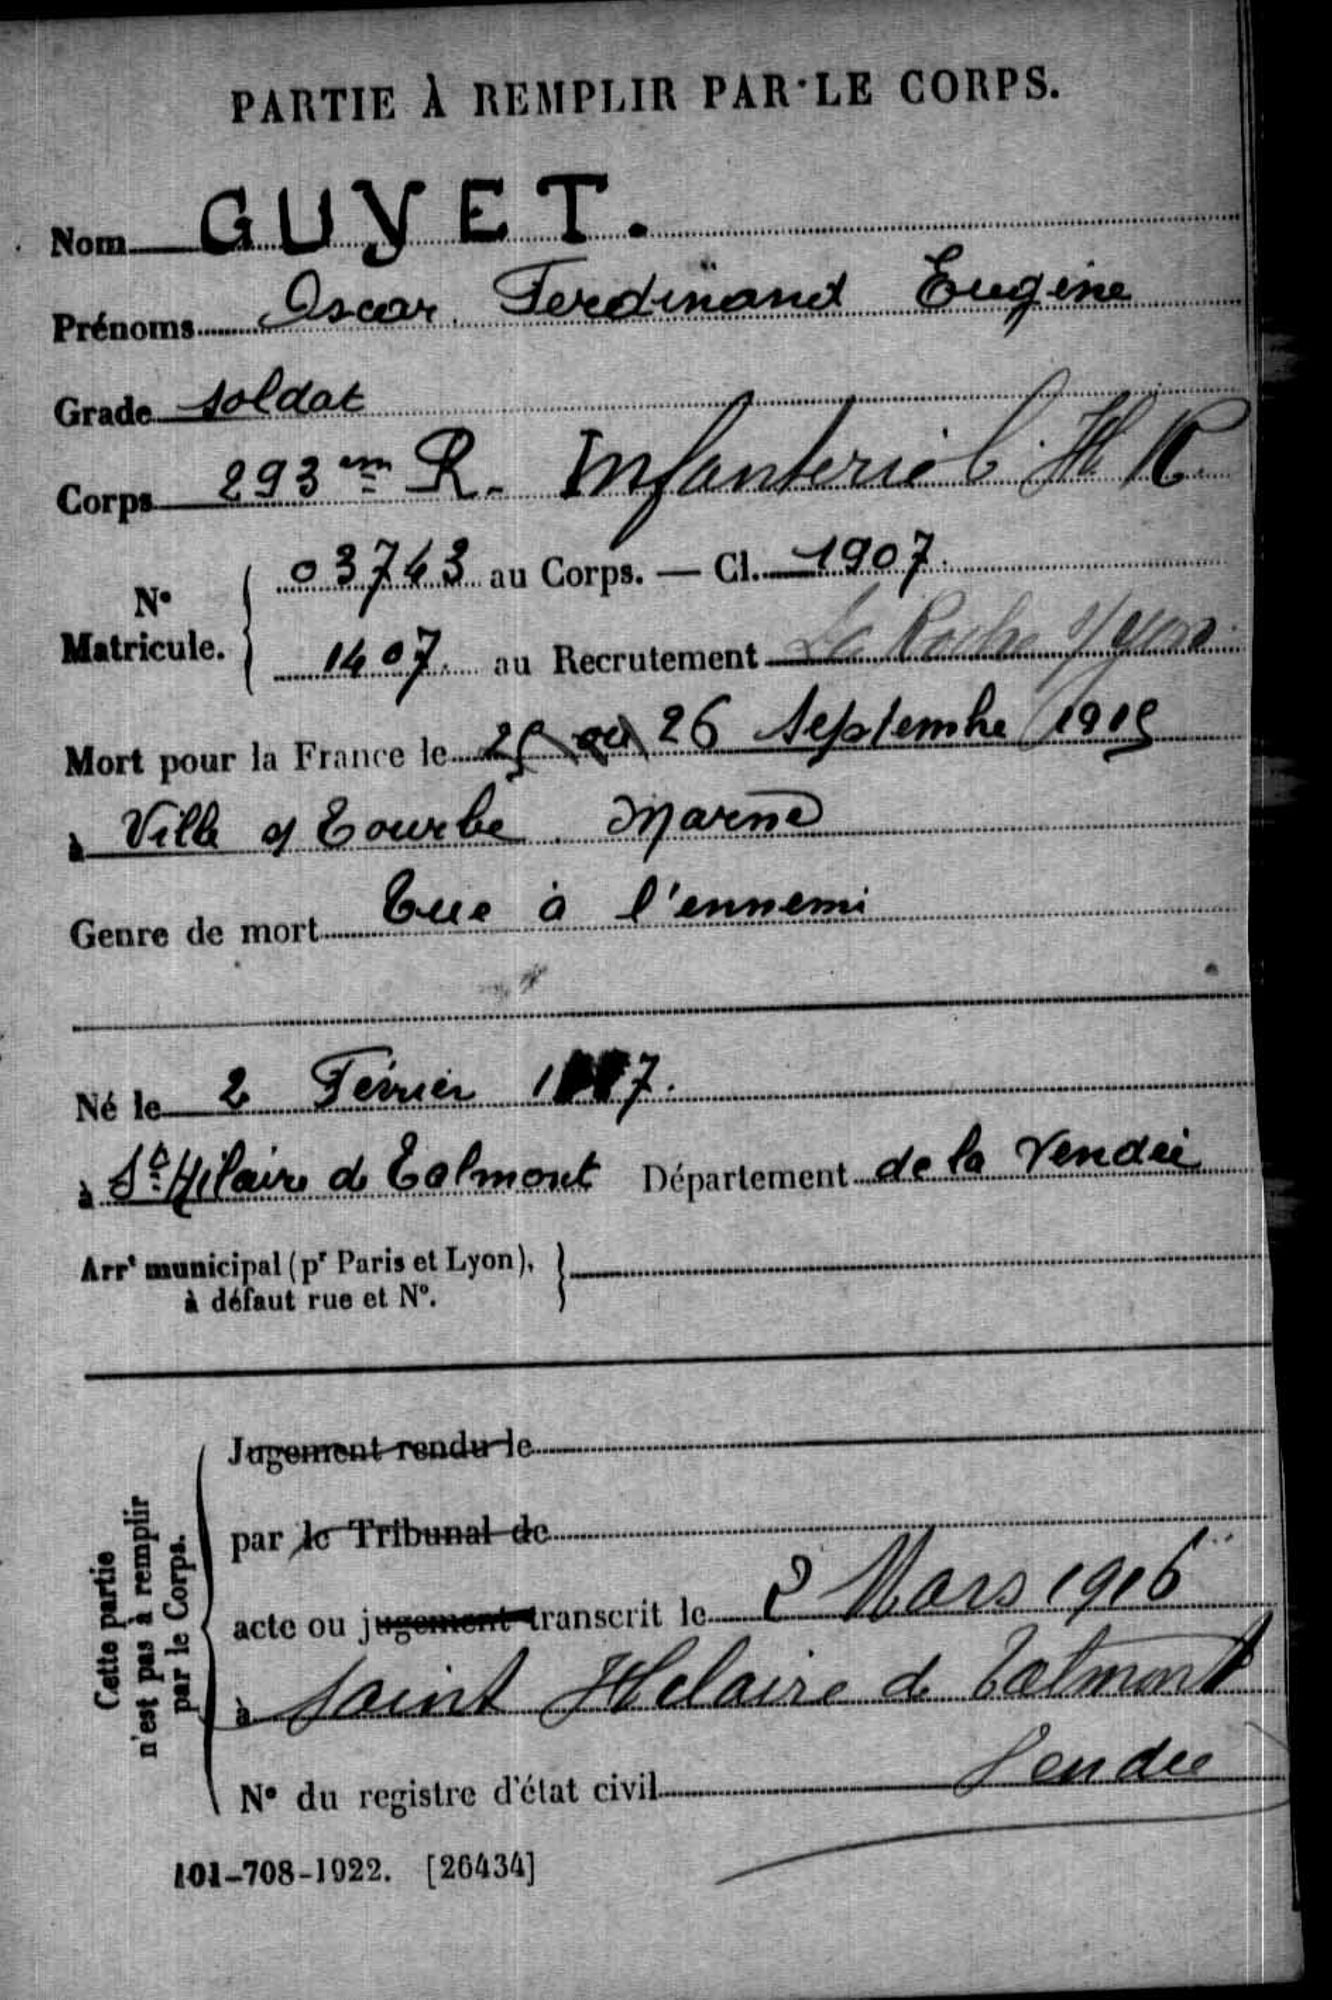 PARTIE À REMPLIR PAR LE CORPS.
Nom GUYET.
Prénoms Oscar Ferdinand Eugène
Grade soldat
Corps 293em R. Infanterie
N° Matricule. 03743 au Corps. — Cl. 1907
1407 au Recrutement La Roche s/ Yon
Mort pour la France le 25 ou 26 Septembre 1915
à Ville s/ Tourbe Marne
Genre de mort Tué à l'ennemi
Né le 2 Février 1887.
à St Hilaire de Talmont Département de la Vendée
Arrt municipal (pr Paris et Lyon),
à défaut rue et N°.
Cette partie
n'est pas à remplir
par le Corps.
Jugement rendu le
par le Tribunal de
acte ou jugement transcrit le Mars 1916
à Saint Hilaire de Talmont
Vendée
N° du registre d'état civil
101-708-1922. [26434]